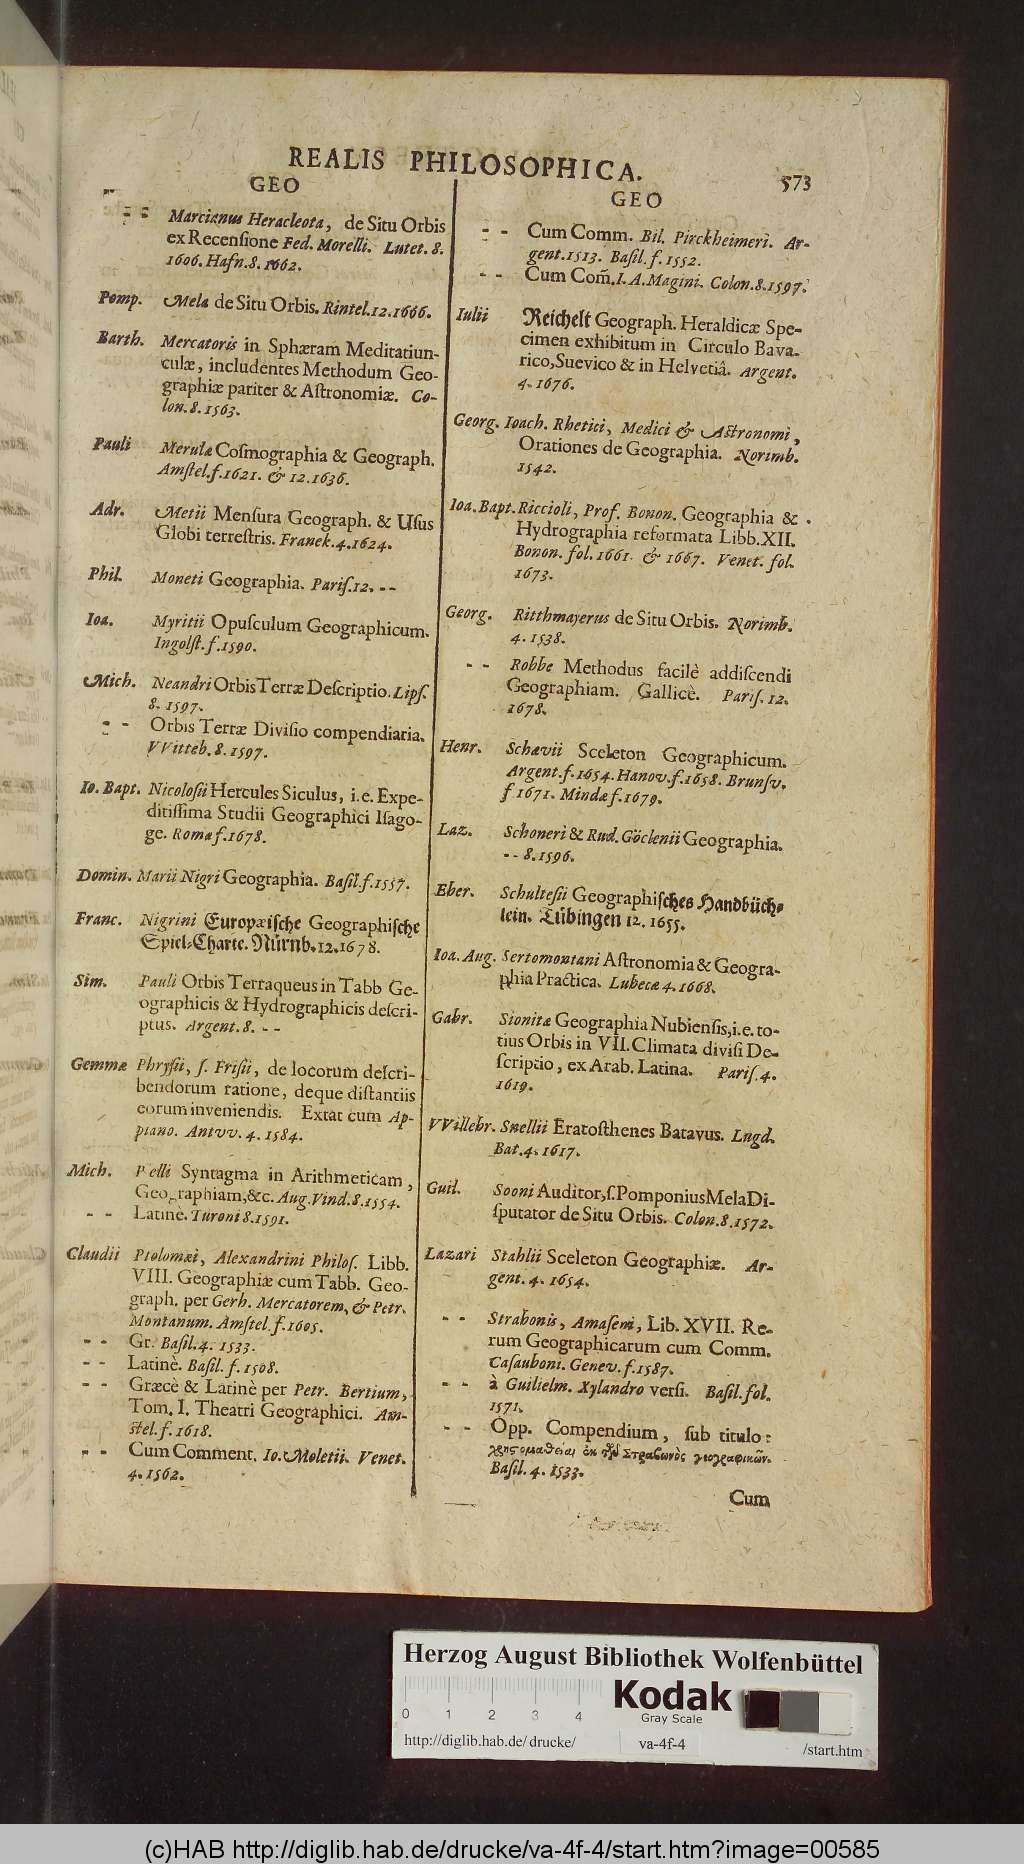 REALIS PHILOSOPHICA.
573
GEO
- - Marcianus Heracleota, de Situ Orbis
ex Recensione Fed. Morelli. Lutet. 8.
1606. Hafn. 8. 1662.
Pomp. Mela de Situ Orbis. Rintel. 12. 1666.
Barth. Mercatoris in Sphæram Meditatiun-
culæ, includentes Methodum Geo-
graphiæ pariter & Astronomiæ. Co-
lon. 8. 1563.
Pauli Merulæ Cosmographia & Geograph.
Amstel. f. 1621. & 12. 1636.
Adr. Metii Mensura Geograph. & Usus
Globi terrestris. Franek. 4. 1624.
Phil. Moneti Geographia. Paris. 12. - -
Ioa. Myritii Opusculum Geographicum.
Ingolst. f. 1590.
Mich. Neandri Orbis Terræ Descriptio. Lips.
8. 1597.
- - Orbis Terræ Divisio compendiaria.
VVitteb. 8. 1597.
Io. Bapt. Nicolosii Hercules Siculus, i. e. Expe-
ditissima Studii Geographici Isago-
ge. Romæ f. 1678.
Domin. Marii Nigri Geographia. Basil. f. 1557.
Franc. Nigrini Europæische Geographische
Spiel-Charte. Nürnb. 12. 1678.
Sim. Pauli Orbis Terraqueus in Tabb Ge-
ographicis & Hydrographicis descri-
ptus. Argent. 8. - -
Gemmæ Phrysii, s. Frisii, de locorum descri-
bendorum ratione, deque distantiis
eorum inveniendis. Extat cum Ap-
piano. Antvv. 4. 1584.
Mich. Pselli Syntagma in Arithmeticam,
Geographiam, &c. Aug. Vind. 8. 1554.
- - Latinè. Turoni 8. 1591.
Claudii Ptolomæi, Alexandrini Philos. Libb.
VIII. Geographiæ cum Tabb. Geo-
graph. per Gerh. Mercatorem, & Petr.
Montanum. Amstel. f. 1605.
- - Gr. Basil. 4. 1533.
- - Latinè. Basil. f. 1508.
- - Græcè & Latinè per Petr. Bertium,
Tom. I. Theatri Geographici. Am-
stel. f. 1618.
- - Cum Comment. Io. Moletii. Venet.
4. 1562.
GEO
- - Cum Comm. Bil. Pirckheimeri. Ar-
gent. 1513. Basil. f. 1552.
- - Cum Com̃. I. A. Magini. Colon. 8. 1597.
Iulii Reichelt Geograph. Heraldicæ Spe-
cimen exhibitum in Circulo Bava-
rico, Suevico & in Helvetiâ. Argent.
4. 1676.
Georg. Ioach. Rhetici, Medici & Astronomi,
Orationes de Geographia. Norimb.
1542.
Ioa. Bapt. Riccioli, Prof. Bonon. Geographia &
Hydrographia reformata Libb. XII.
Bonon. fol. 1661. & 1667. Venet. fol.
1673.
Georg. Ritthmayerus de Situ Orbis. Norimb.
4. 1538.
- - Robbe Methodus facilè addiscendi
Geographiam. Gallicè. Paris. 12.
1678.
Henr. Schævii Sceleton Geographicum.
Argent. f. 1654. Hanov. f. 1658. Brunsv.
f 1671. Mindæ f. 1679.
Laz. Schoneri & Rud. Göclenii Geographia.
- - 8. 1596.
Eber. Schultesii Geographisches Handbüch-
lein. Tübingen 12. 1655.
Ioa. Aug. Sertomontani Astronomia & Geogra-
phia Practica. Lubecæ 4. 1668.
Gabr. Sionitæ Geographia Nubiensis, i. e. to-
tius Orbis in VII. Climata divisi De-
scriptio, ex Arab. Latina. Paris. 4.
1619.
VVillebr. Snellii Eratosthenes Batavus. Lugd.
Bat. 4. 1617.
Guil. Sooni Auditor, s. Pomponius Mela Di-
sputator de Situ Orbis. Colon. 8. 1572.
Lazari Stahlii Sceleton Geographiæ. Ar-
gent. 4. 1654.
- - Strabonis, Amaseni, Lib. XVII. Re-
rum Geographicarum cum Comm.
Casauboni. Genev. f. 1587.
- - à Guilielm. Xylandro versi. Basil. fol.
1571.
- - Opp. Compendium, sub titulo:
χρηςομαθείαι ἐκ τῶν Στράβωνὸς γεογραφικῶν.
Basil. 4. 1533.
Cum
Herzog August Bibliothek Wolfenbüttel
0 1 2 3 4
Kodak
Gray Scale
http://diglib.hab.de/drucke/
va-4f-4
/start.htm
(c)HAB http://diglib.hab.de/drucke/va-4f-4/start.htm?image=00585